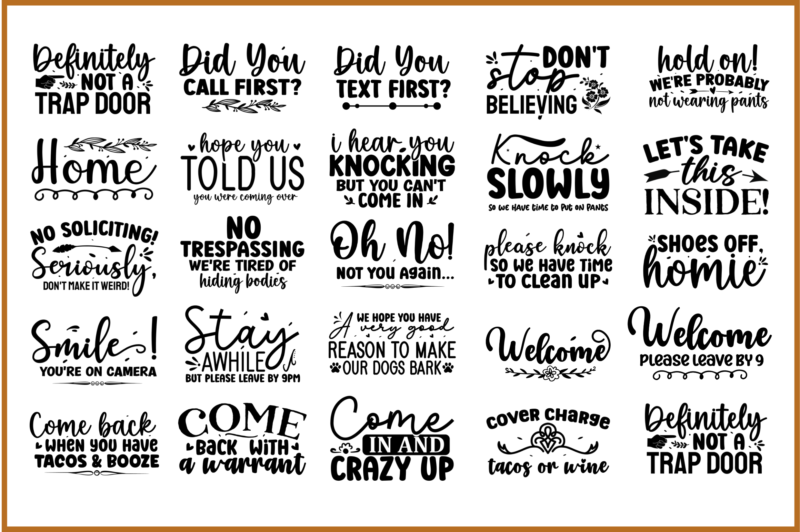 Definitely
NOT A
TRAP DOOR
Did You
CALL FIRST?
Did You
TEXT FIRST?
DON'T
stop
BELIEVING
hold on!
WE'RE PROBABLY
not wearing pants
Home
hope you
TOLD US
you were coming over
i hear you
KNOCKING
BUT YOU CAN'T
COME IN
Knock
SLOWLY
SO WE HAVE TIME TO PUT ON PANTS
LET'S TAKE
this
INSIDE!
NO SOLICITING!
Seriously,
DON'T MAKE IT WEIRD!
NO
TRESPASSING
WE'RE TIRED OF
hiding bodies
Oh No!
NOT YOU AGAIN...
please knock
SO WE HAVE TIME
TO CLEAN UP
SHOES OFF,
homie
Smile!
YOU'RE ON CAMERA
Stay
AWHILE
BUT PLEASE LEAVE BY 9PM
WE HOPE YOU HAVE
A very good
REASON TO MAKE
OUR DOGS BARK
Welcome
Welcome
PLEASE LEAVE BY 9
Come back
WHEN YOU HAVE
TACOS & BOOZE
COME
BACK WITH
a warrant
Come
IN AND
CRAZY UP
COVER CHARGE
tacos or wine
Definitely
NOT A
TRAP DOOR